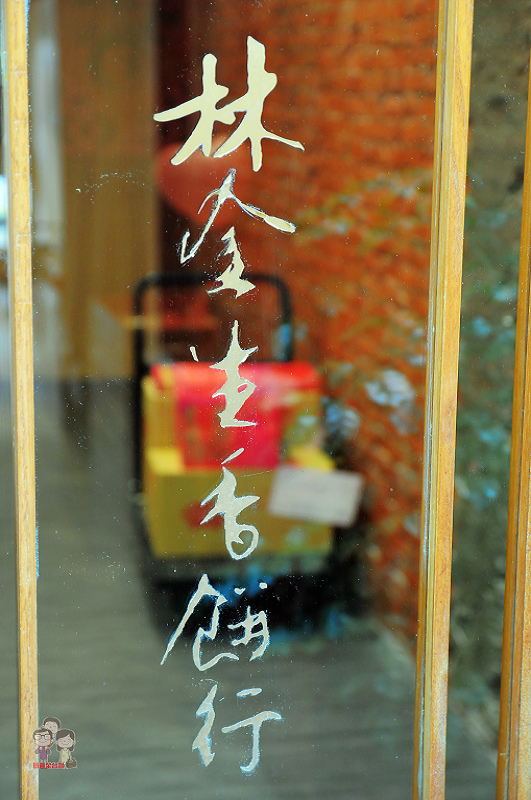 林金生香餅行